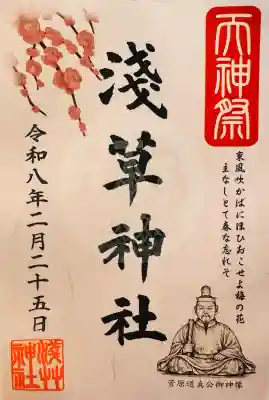 天神祭
東風吹かばにほひおこせよ梅の花
主なしとて春な忘れそ
淺草神社
令和八年二月二十五日
淺草
神社
菅原道真公御神像